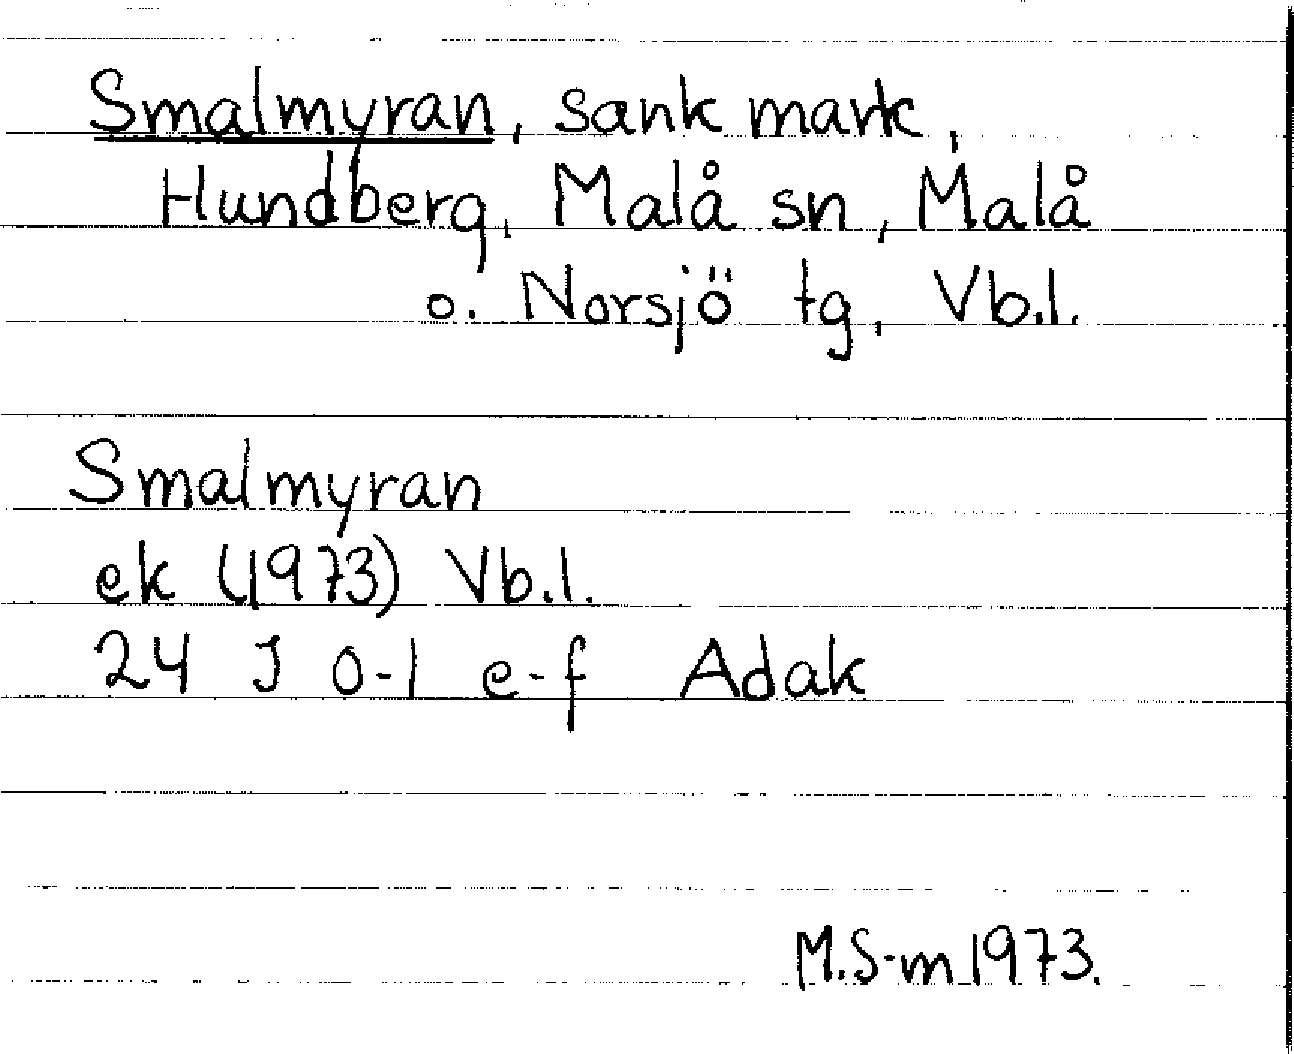 Smalmyran, sank mark,
Hundberg, Malå sn, Malå
o. Norsjö tg, Vb.l.
Smalmyran
ek (1973) Vb.l.
24 J 0-1 e-f Adak
M.S-m 1973.